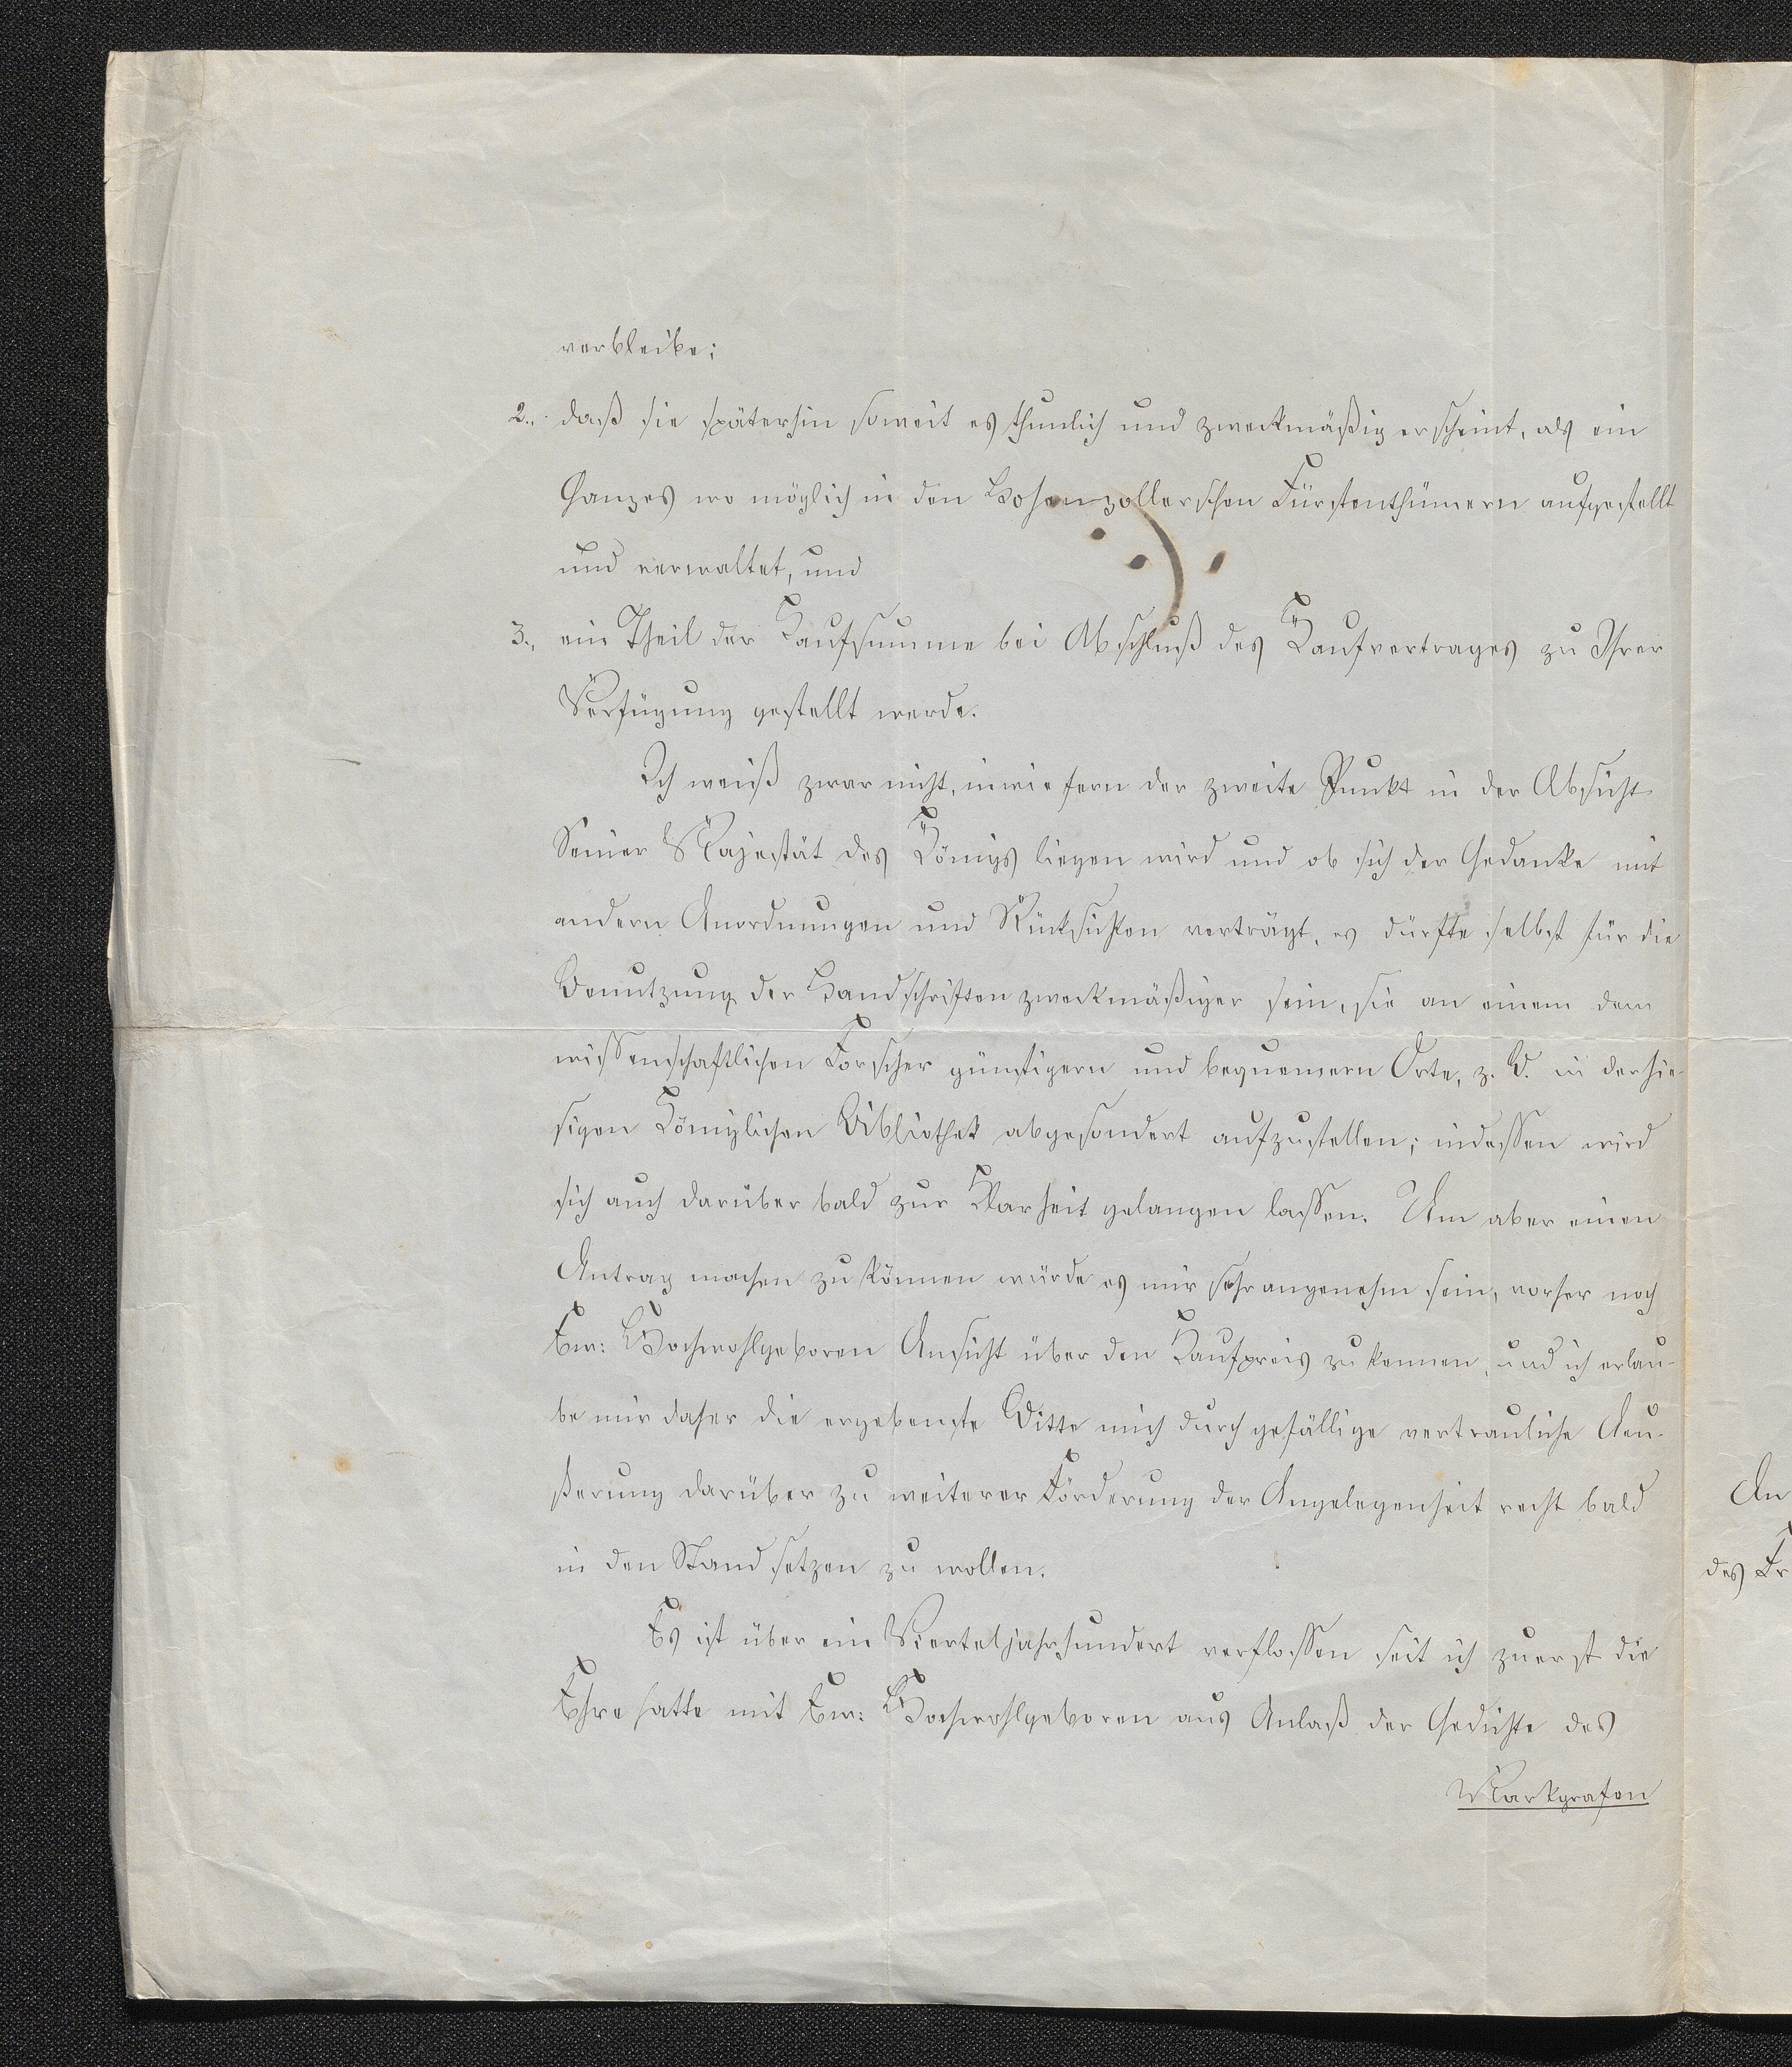 verbleibe;
2., daß sie späterhin soweit es thunlich und zweckmäßig erscheint, als ein
Ganzes wo möglich in den Hohenzollerschen Fürstenthümern aufgestellt
und verwaltet, und
3., ein Theil der Kaufsumme bei Abschluß des Kaufvertrages zu Ihrer
Verfügung gestellt werde.
Ich weiß zwar nicht, inwiefern der zweite Punkt in der Absicht
Seiner Majestät des Königs liegen wird und ob sich der Gedanke mit
andern Anordnungen und Rücksichten verträgt, es dürfte selbst für die
Benutzung der Handschriften zweckmäßiger sein, sie an einem dem
wissenschaftlichen Forscher günstigern und bequemern Orte, z. B. in der hie-
sigen Königlichen Bibliothek abgesondert aufzustellen; indessen wird
sich auch darüber bald zur Klarheit gelangen lassen. Um aber einen
Antrag machen zu können würde es mir sehr angenehm sein, vorher noch
Ew: Hochwohlgeboren Ansicht über den Kaufpreis zu kennen, und ich erlau-
be mir daher die ergebenste Bitte mich durch gefällige vertrauliche Aeu-
ßerung darüber zu weiterer Förderung der Angelegenheit recht bald
in den Stand setzen zu wollen.
Es ist über ein Vierteljahrhundert verflossen seit ich zuerst die
Ehre hatte mit Ew: Hochwohlgeboren aus Anlaß der Gedichte des
Markgrafen
An
des Fr